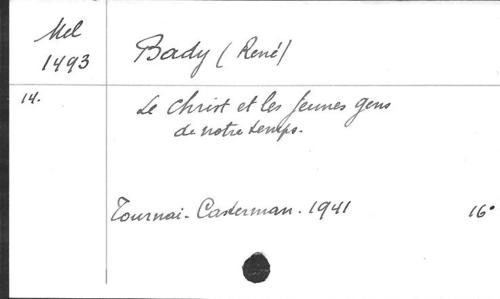 Mel
1493
Bady (René)
14.
Le Christ et les Jeunes gens
de notre temps.
Tournai - Casterman. 1941
16°